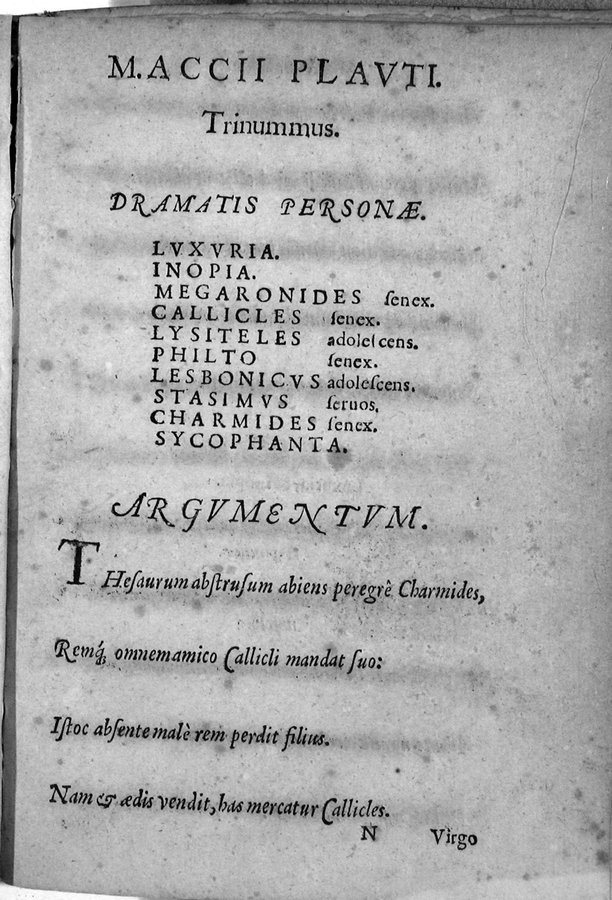 M. ACCII PLAVTI.
Trinummus.
DRAMATIS PERSONÆ.
LVXVRIA.
INOPIA.
MEGARONIDES ſenex.
CALLICLES ſenex.
LYSITELES adoleſcens.
PHILTO ſenex.
LESBONICVS adoleſcens.
STASIMVS ſeruos,
CHARMIDES ſenex.
SYCOPHANTA.
ARGVMENTVM.
THeſaurum abſtruſum abiens peregrè Charmides,
Remq́; omnem amico Callicli mandat ſuo:
Iſtoc abſente malè rem perdit filius.
Nam & ædis vendit, has mercatur Callicles.
N Virgo